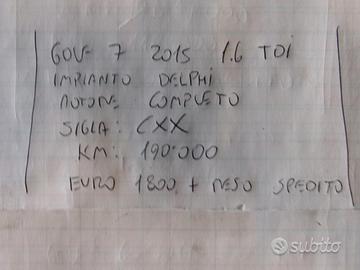 GOLF 7 2015 1.6 TDI
IMPIANTO DELPHI
MOTORE COMPLETO
SIGLA: CXX
KM: 190.000
EURO 1800 + RESO SPEDITO
subito